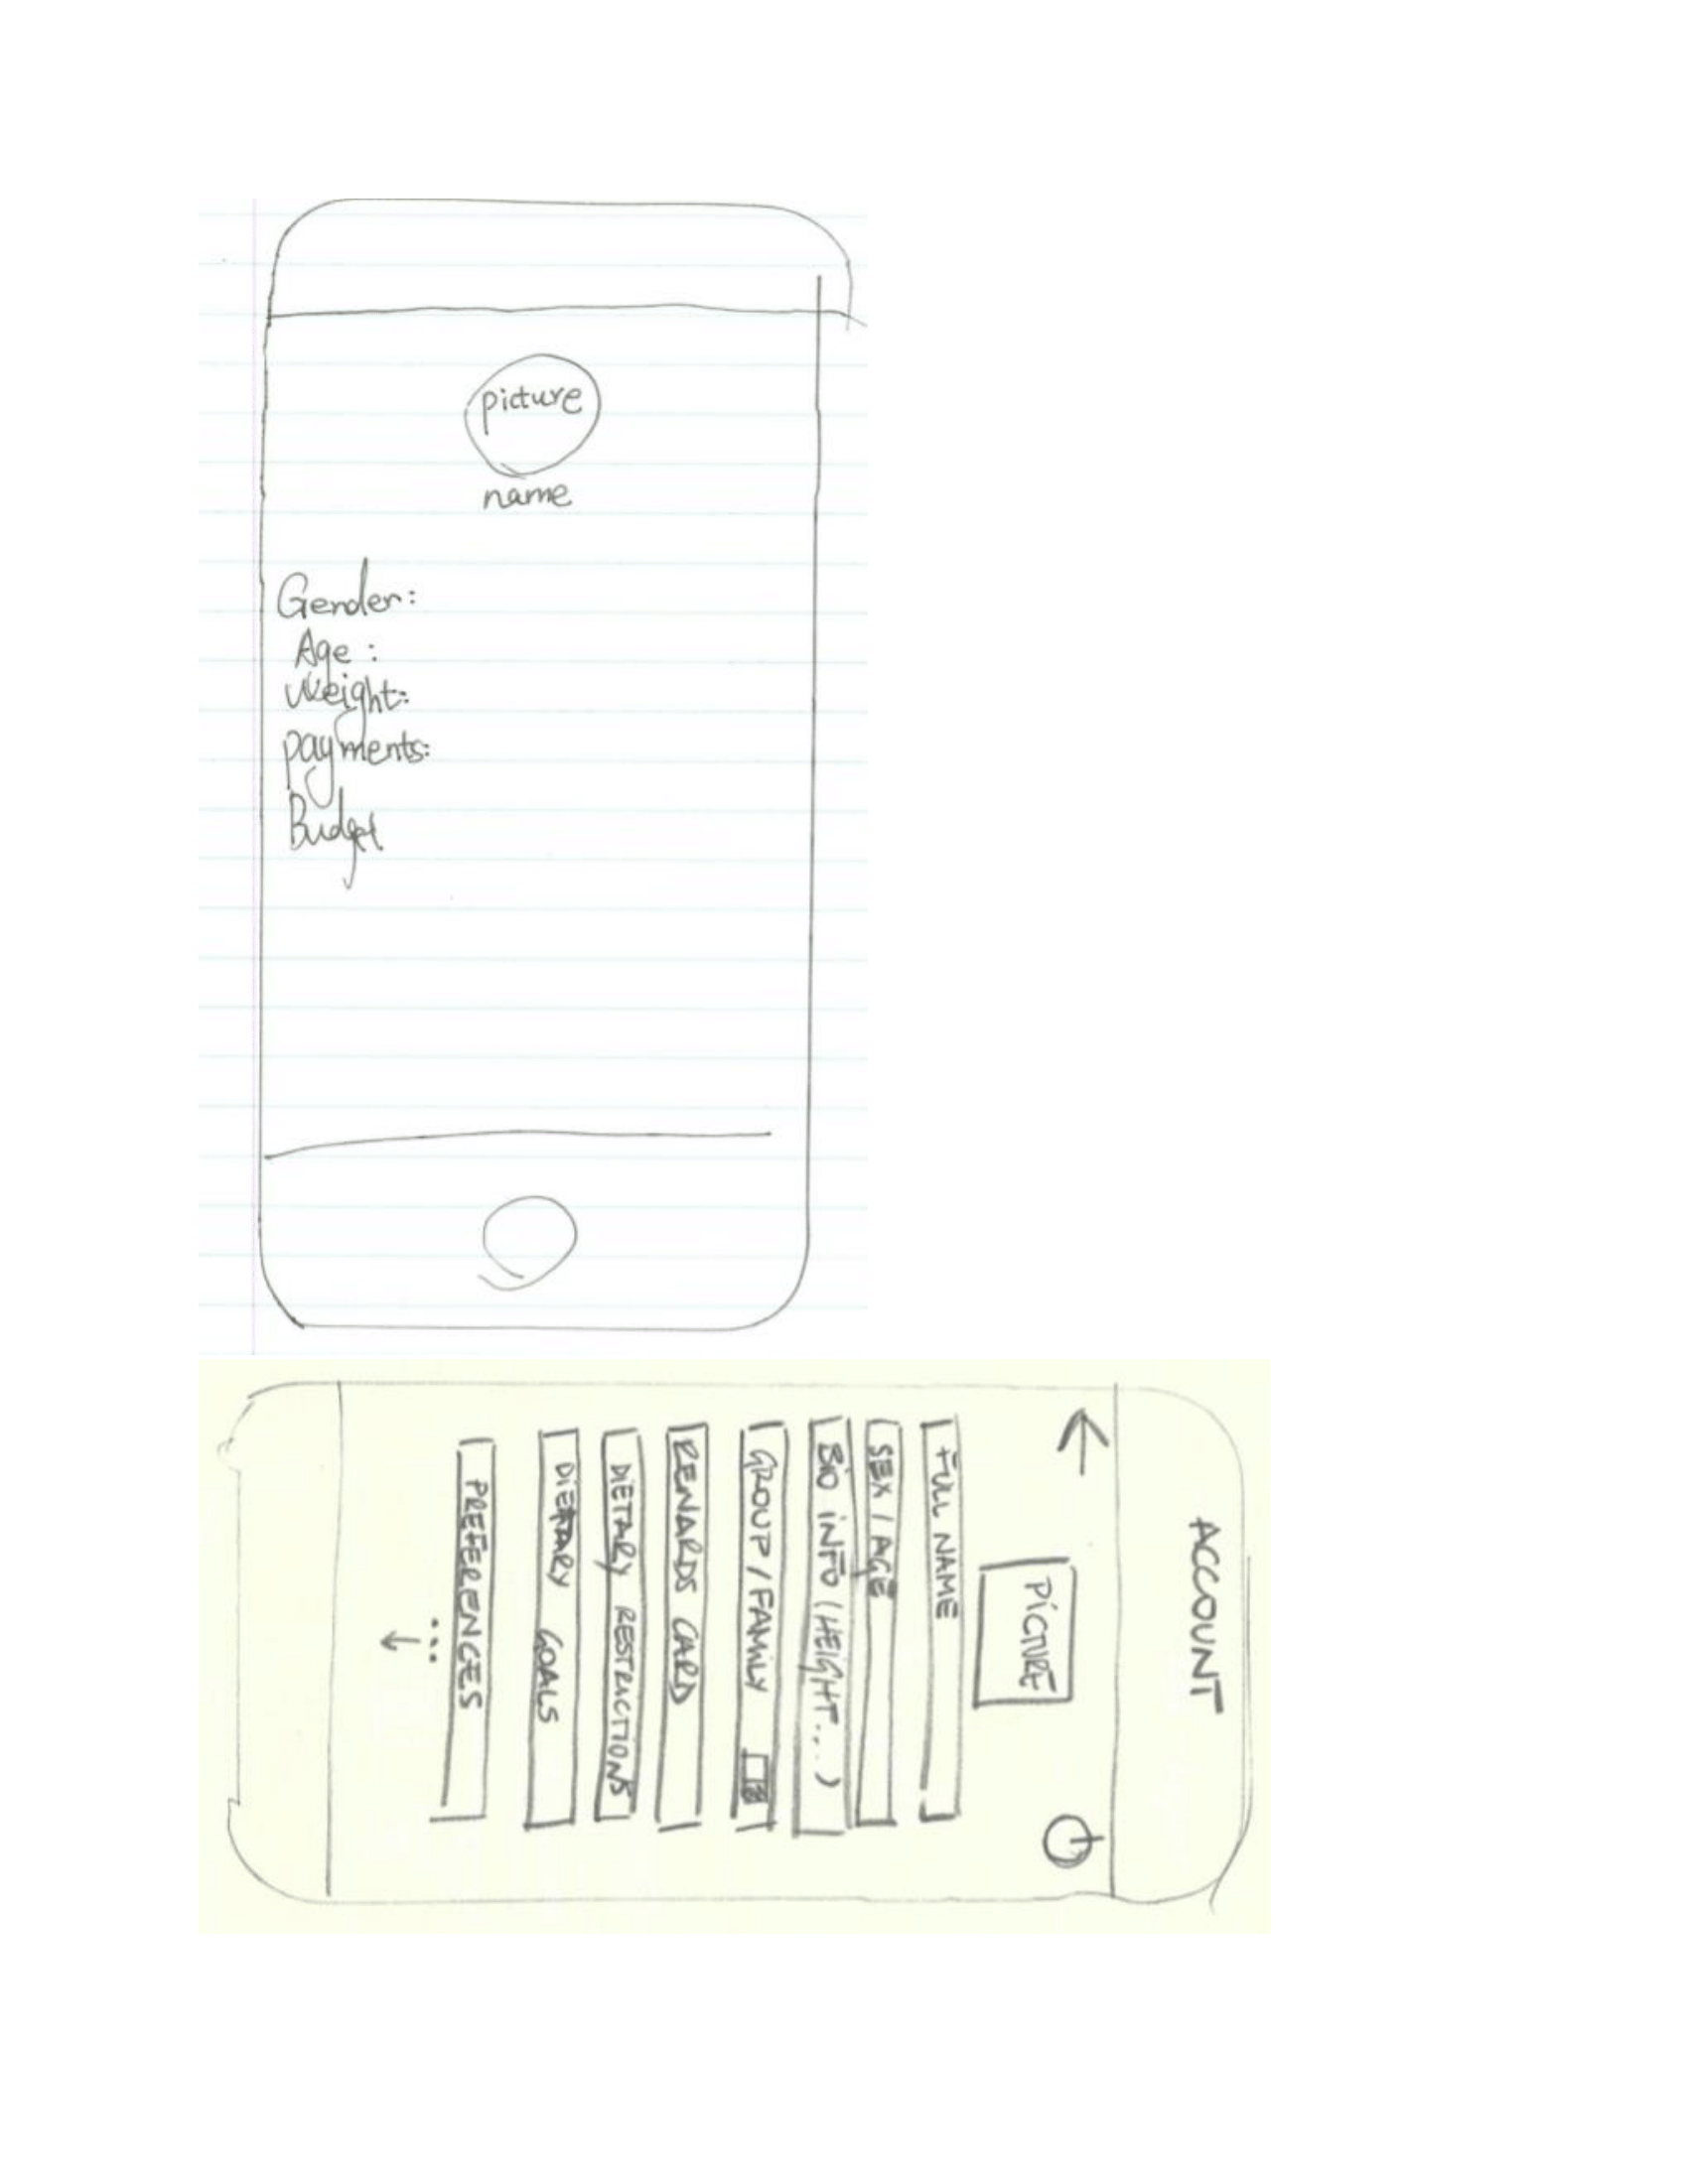 picture
name
Gender:
Age :
Weight:
payments:
Budget
ACCOUNT
PICTURE
FULL NAME
SEX / AGE
BIO INFO (HEIGHT...)
GROUP / FAMILY
REWARDS CARD
DIETARY RESTRICTIONS
DIETARY GOALS
PREFERENCES
...